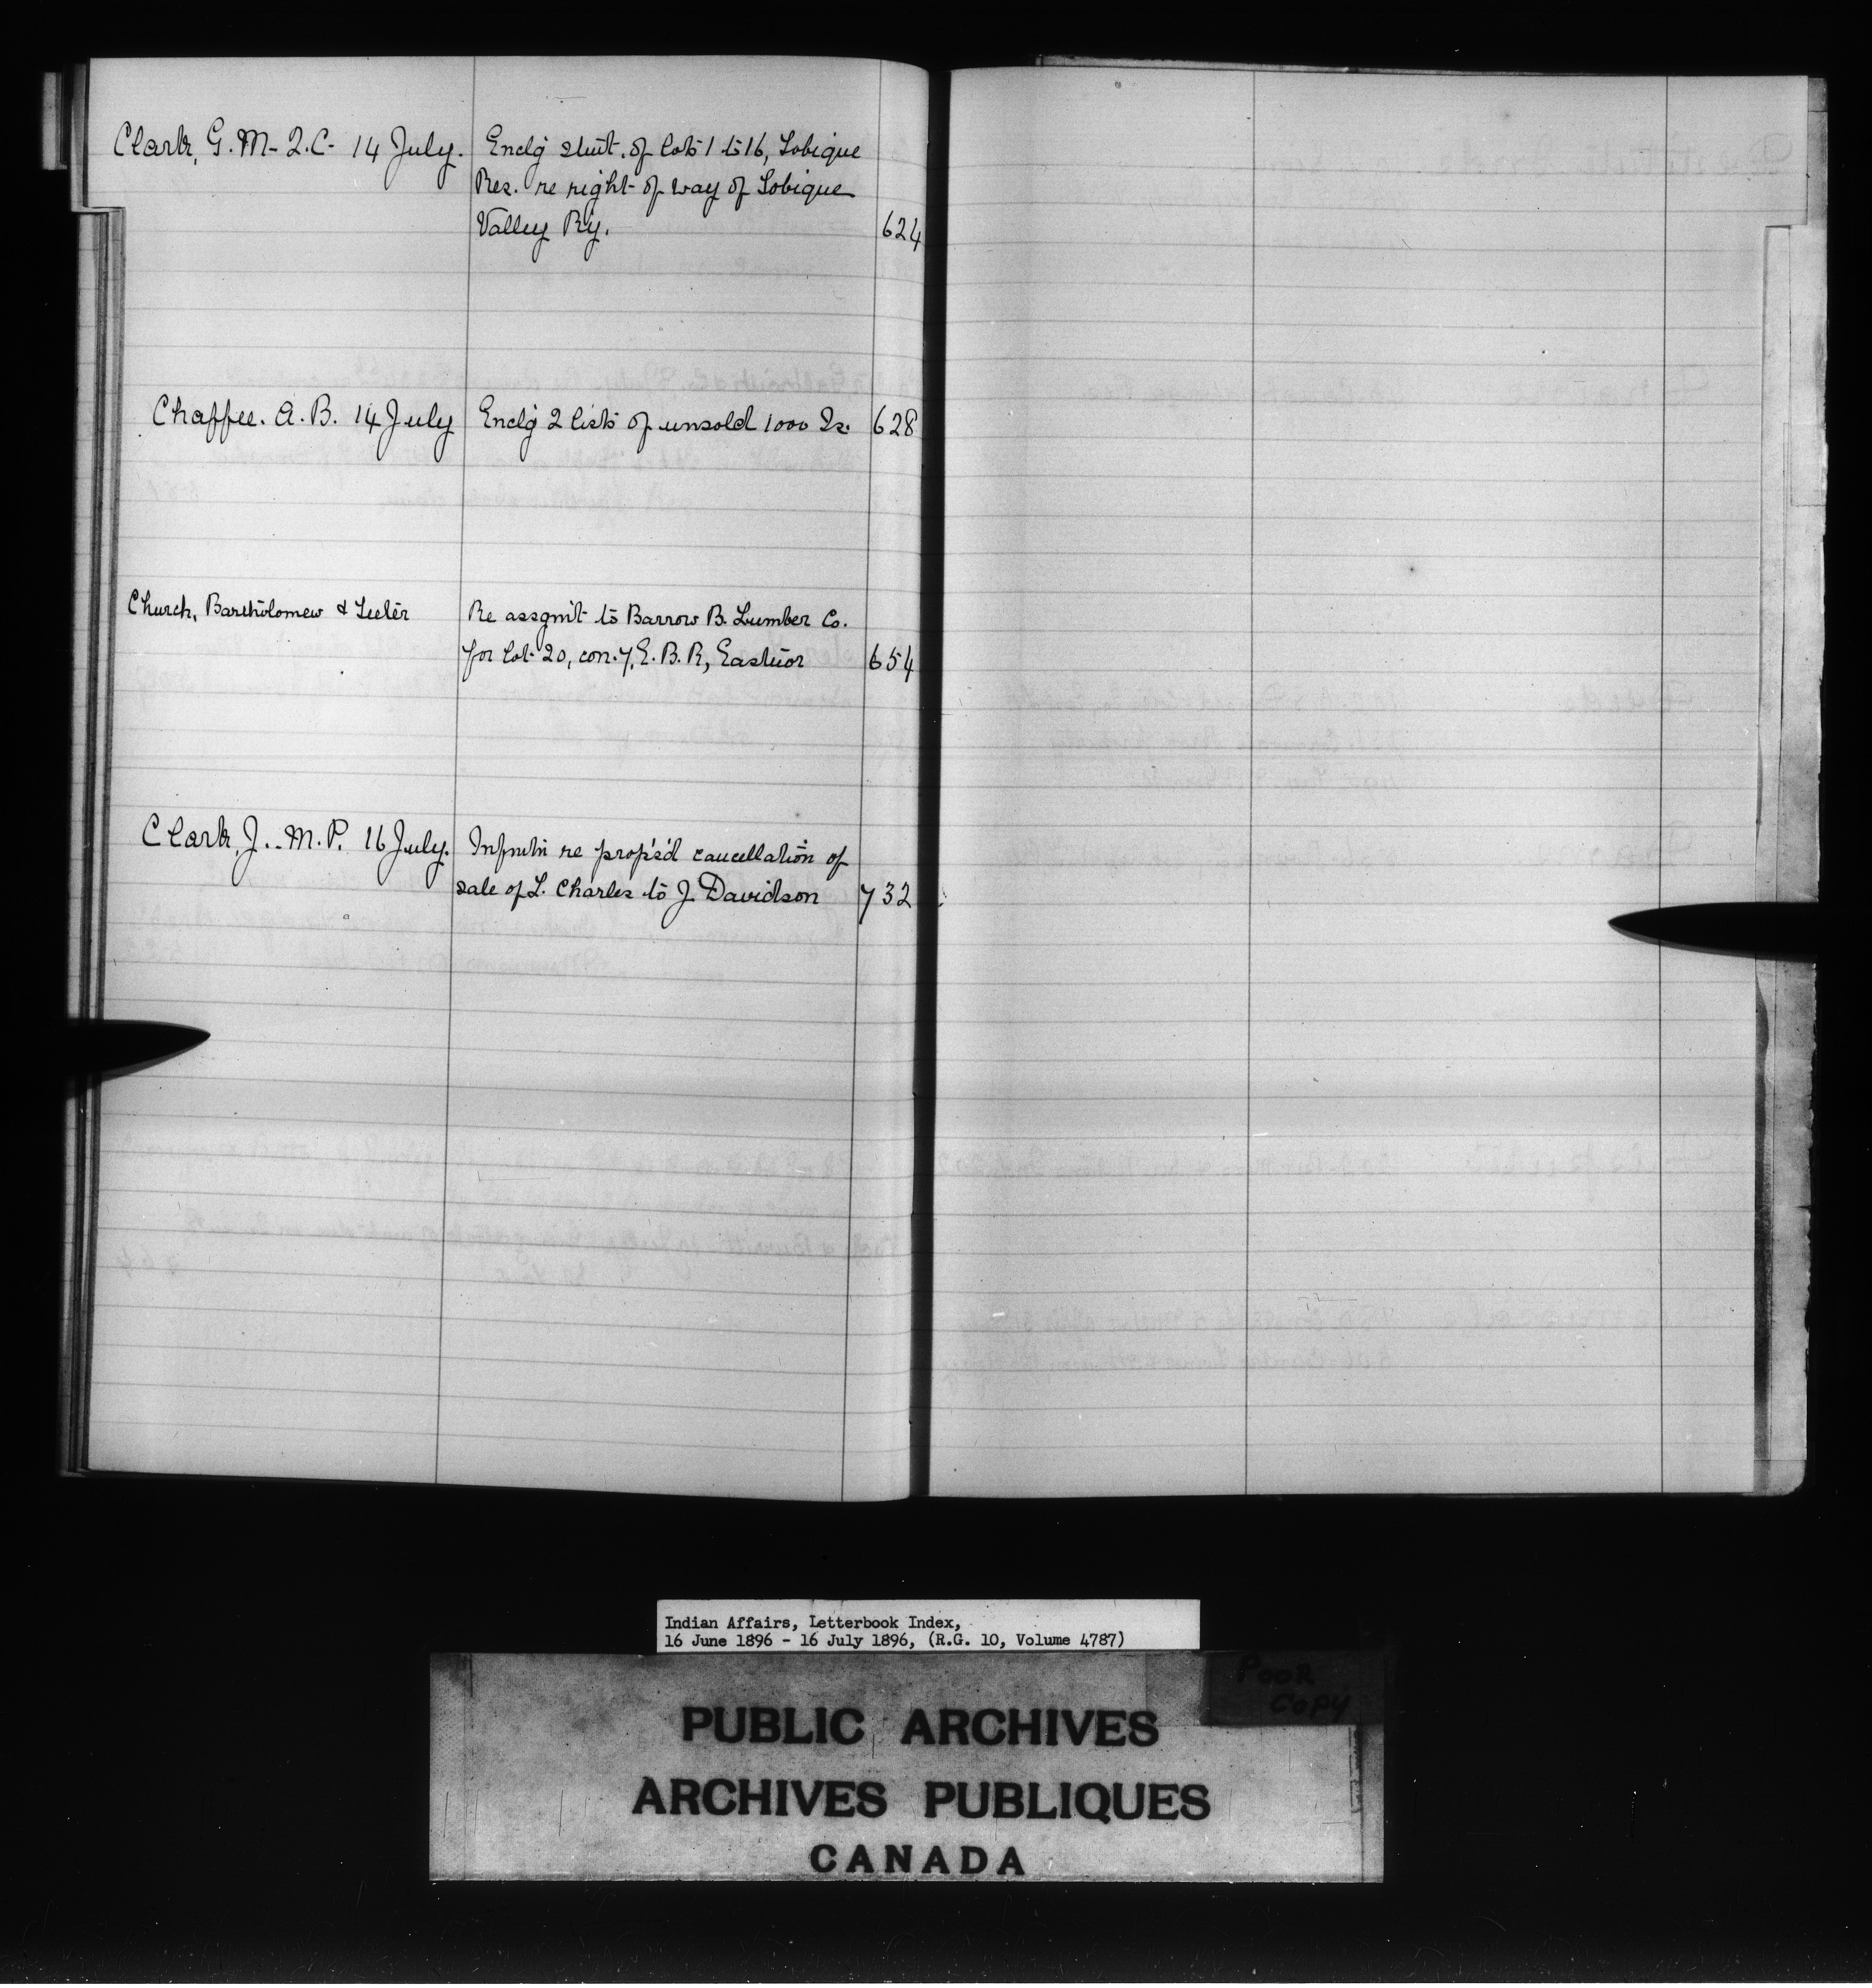 Clark, G. M. Q.C. 14 July. Enclg stmt. of lots 1 to 16, Tobique
Res. re right of way of Tobique
Valley Ry. 624
Chaffee. A. B. 14 July Enclg 2 lists of unsold 1000 Is. 628
Church, Bartholomew & Teeter Re assgmt to Barrow B. Lumber Co.
for lot 20, con. 7, E. B. R, Eastnor 654
Clark, J. M. P. 16 July. Infmtn re prop's'd cancellation of
sale of L. Charles to J. Davidson 732
Indian Affairs, Letterbook Index,
16 June 1896 - 16 July 1896, (R.G. 10, Volume 4787)
Poor
Copy
PUBLIC ARCHIVES
ARCHIVES PUBLIQUES
CANADA